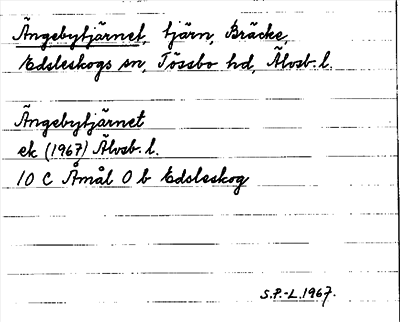 Ängebytjärnet, tjärn, Bräcke,
Edsleskogs sn, Tössbo hd, Älvsb. l.
Ängebytjärnet
ek (1967) Älvsb. l.
10 C Åmål 0 b Edsleskog
S.P.-L. 1967.